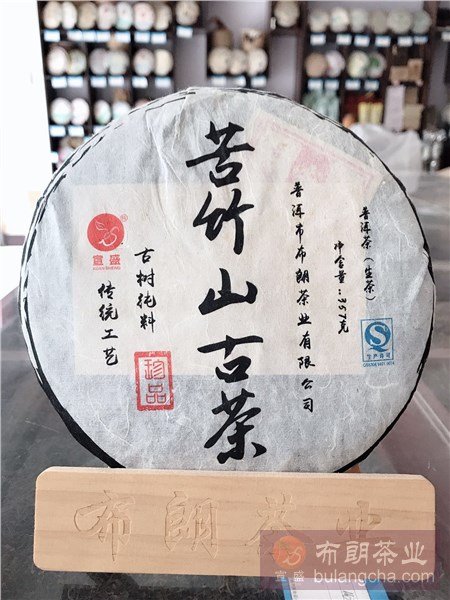 苦竹山古茶
普洱茶(生茶)
净含量:357克
普洱市布朗茶业有限公司
宜盛
古树纯料
传统工艺
珍品
生产许可
布朗茶业
宜盛
布朗茶业
bulangcha.com